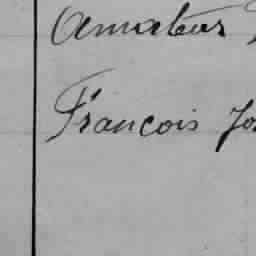 Amateur
Francois Jo